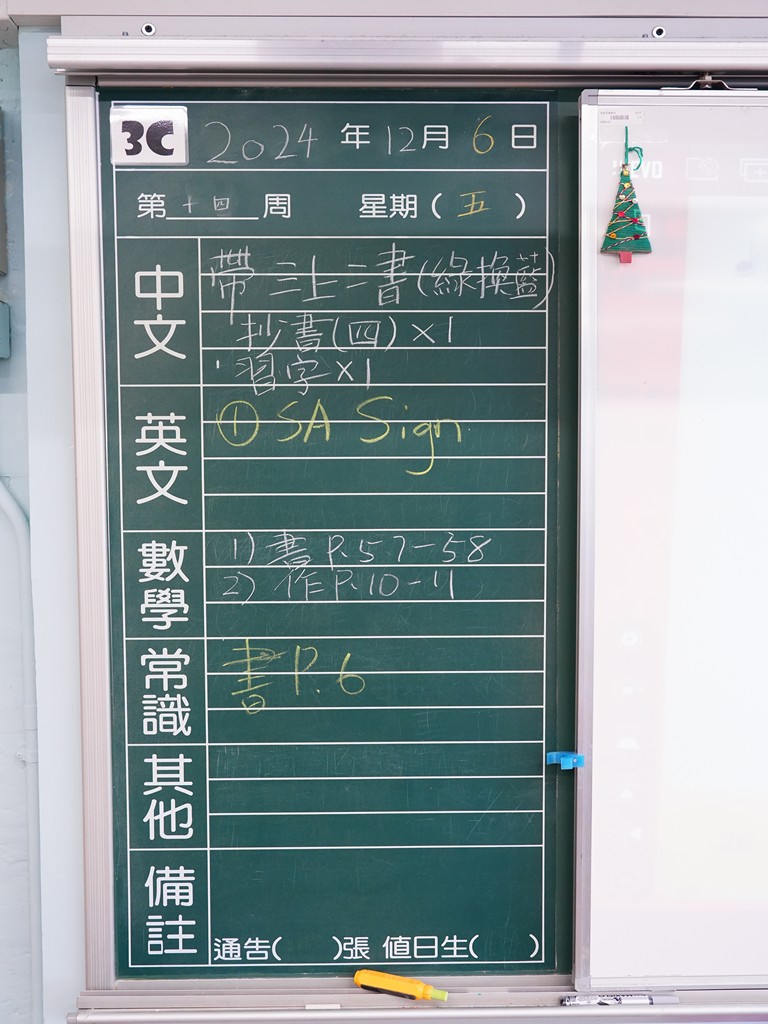 3C 2024年12月6日
第十四周 星期(五)
中文
帶三上二書(綠換藍)
抄書(四)×1
·習字×1
英文
① SA Sign
數學
1) 書P.57-58
2) 作P.10-11
常識
書P.6
其他
備註
通告( )張 值日生( )